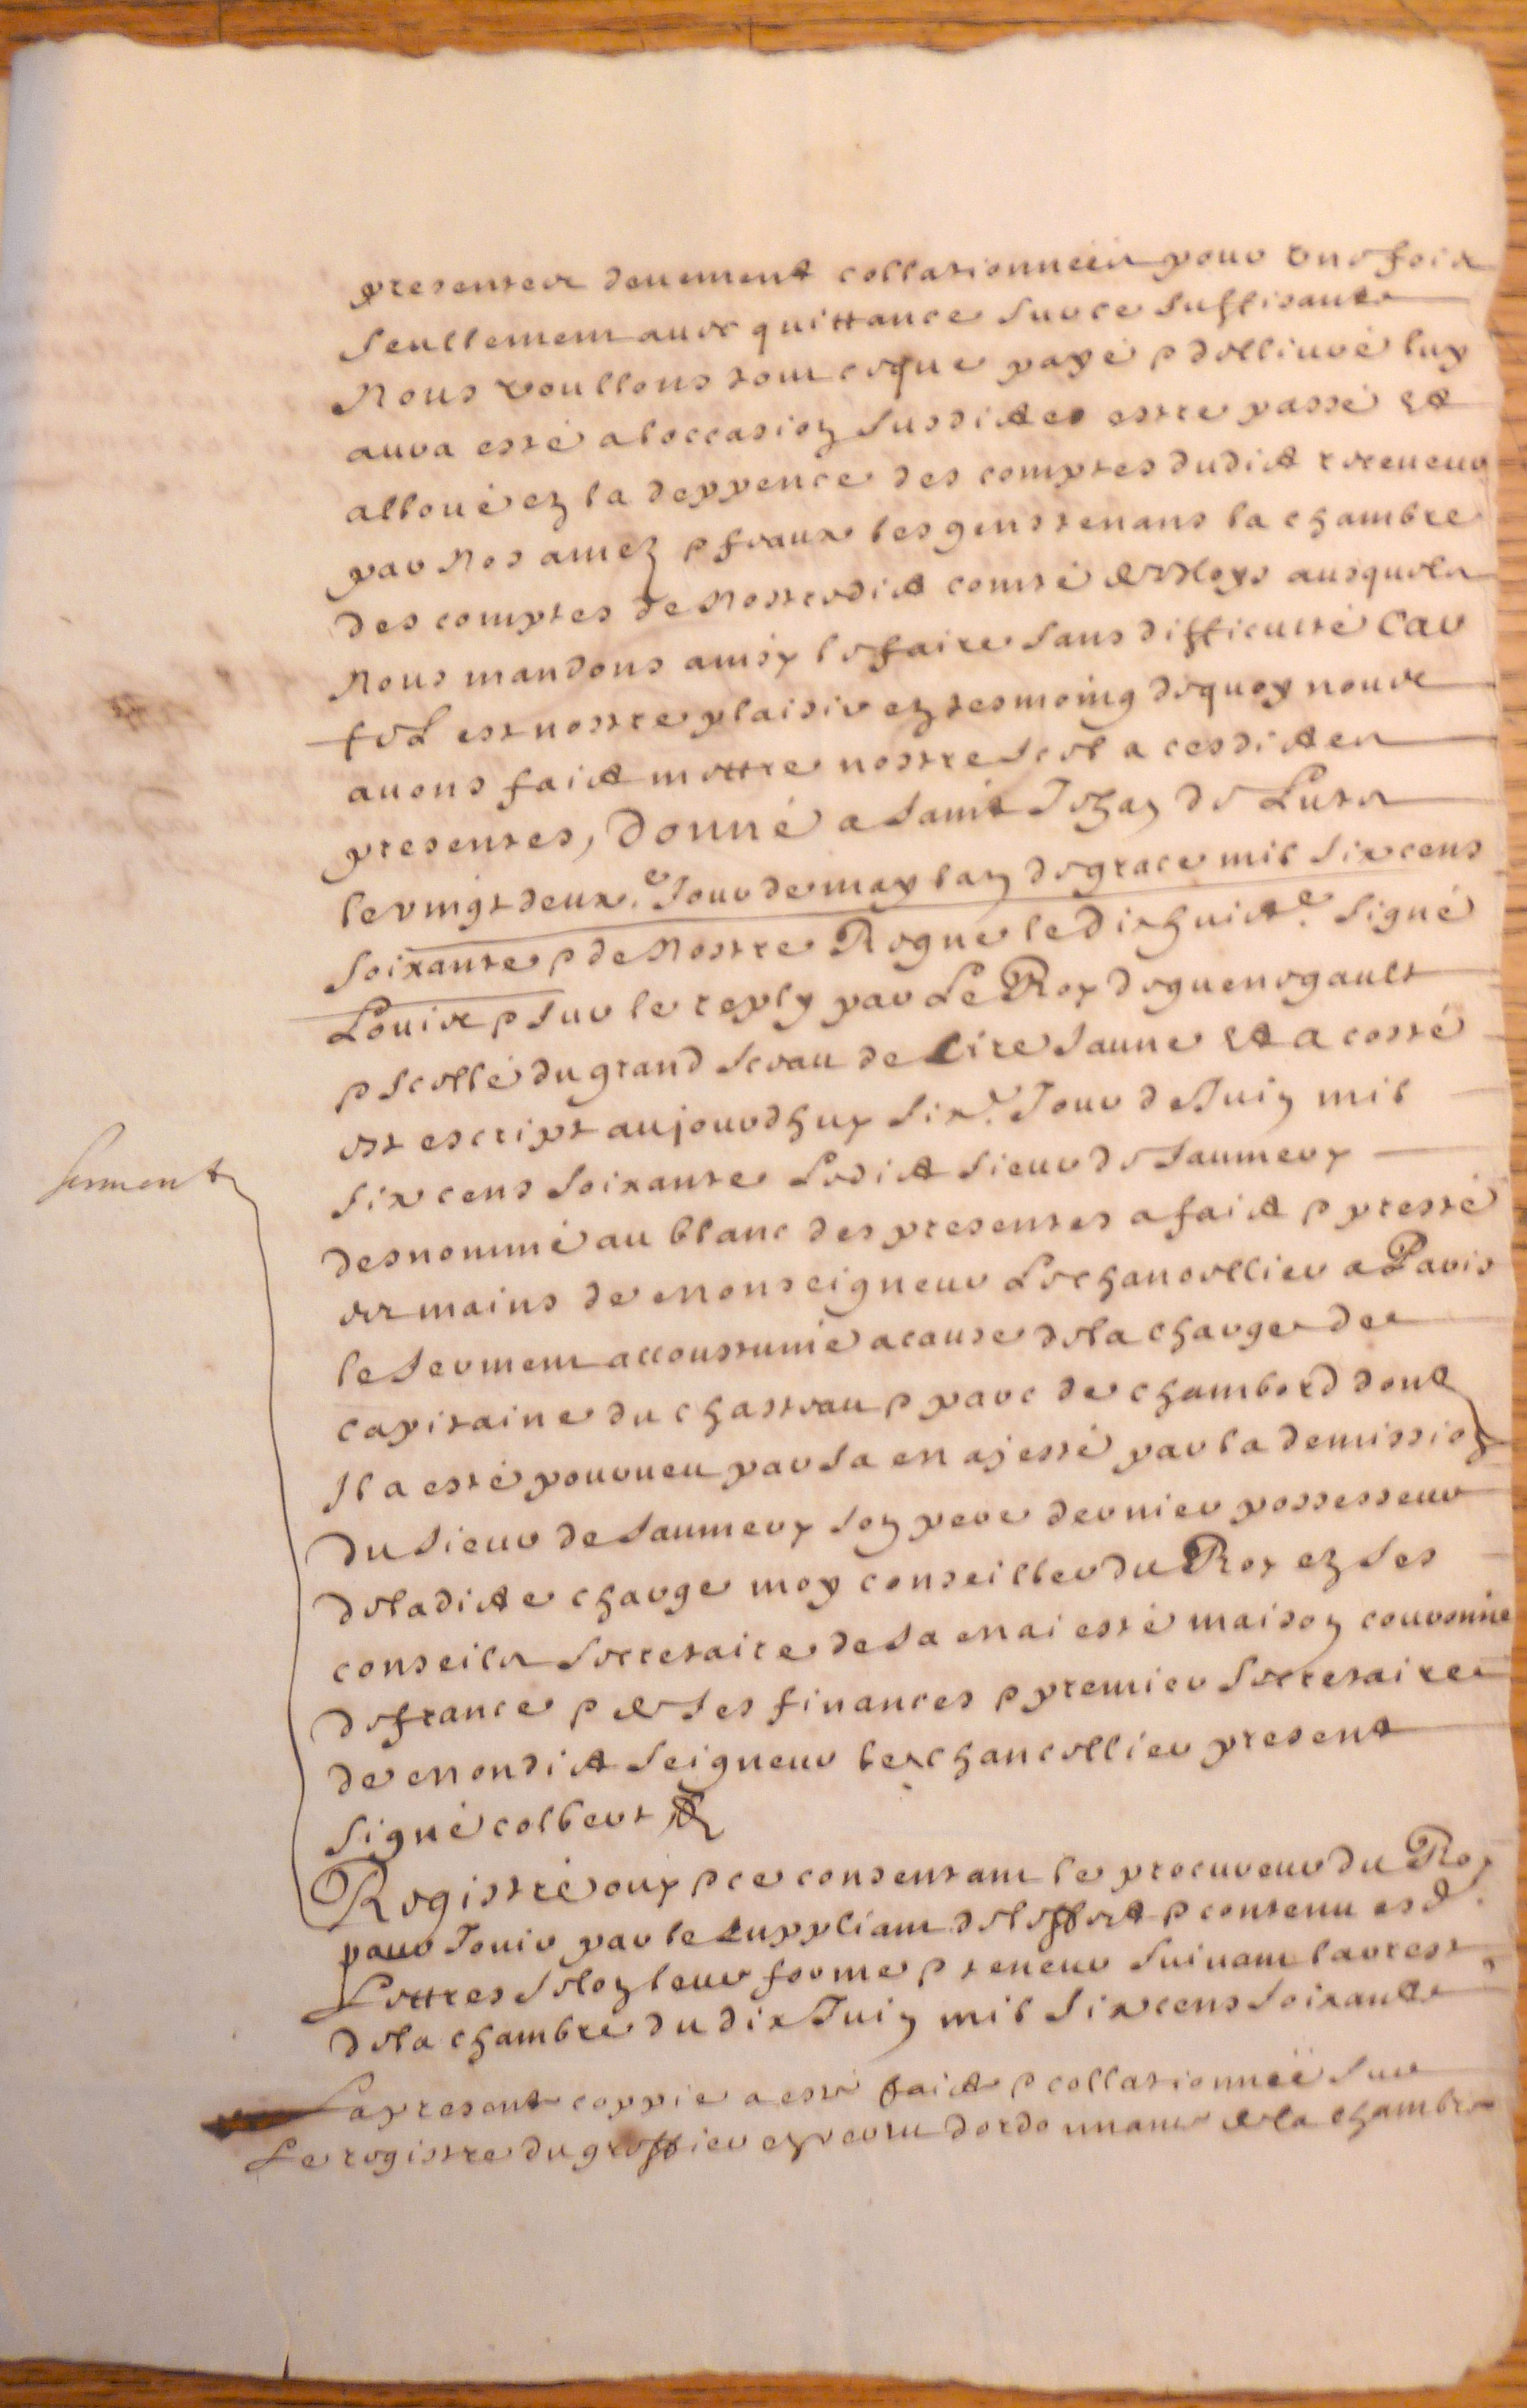 presentes deuement collationnées pour une fois
seullement avec quittance sur ce suffisante
Nous voullons tout ce que payé & dellivré luy
aura esté a loccasion susdictes estre passé et
alloué en la deppence des comptes dudict receveur
par Nos amez & feaux les gens tenans la chambre
des comptes de Nostredict comté de Bloys ausquels
Nous mandons ainsy le faire sans difficulté Car
tel est nostre plaisir en tesmoing de quoy nous
avons faict mettre nostre scel a cesdictes
presentes, Donné a Saint Jehan de Lus
le vingt deuxe. Jour de may lan de grace mil six cens
soixante & de Nostre Regne le dix huicte. Signé
Louis & sur le reply par Le Roy de guenegault
& scellé du grand sceau de Cire Jaune et a costé
est escript aujourdhuy sixe. Jour de Juin mil
six cens soixante Ledict sieur de Saumery
desnommé au blanc des presentes a faict & presté
es mains de Monseigneur Le chancellier a Paris
le serment accoustumé a cause de la charge de
capitaine du chasteau & parc de chambord dont
Il a esté pourveu par sa Majesté par la demission
du sieur de Saumery son pere dernier possesseur
de ladicte charge moy conseiller du Roy en ses
conseils secretaire de sa Maiesté maison couronne
de france & de ses finances & premier secretaire
de Mondict Seigneur le chancellier present
signé colbert
Serment
Registré ouy & ce consentant le procureur du Roy
pour Jouir par le suppliant de leffect & contenu esd.
Lettres selon leur forme & teneur suivant larrest
de la chambre du dix Juin mil six cens soixante
La present coppie a esté faict & collationnée sur
Le registre du greffier en vertu dordonnance de la chambre